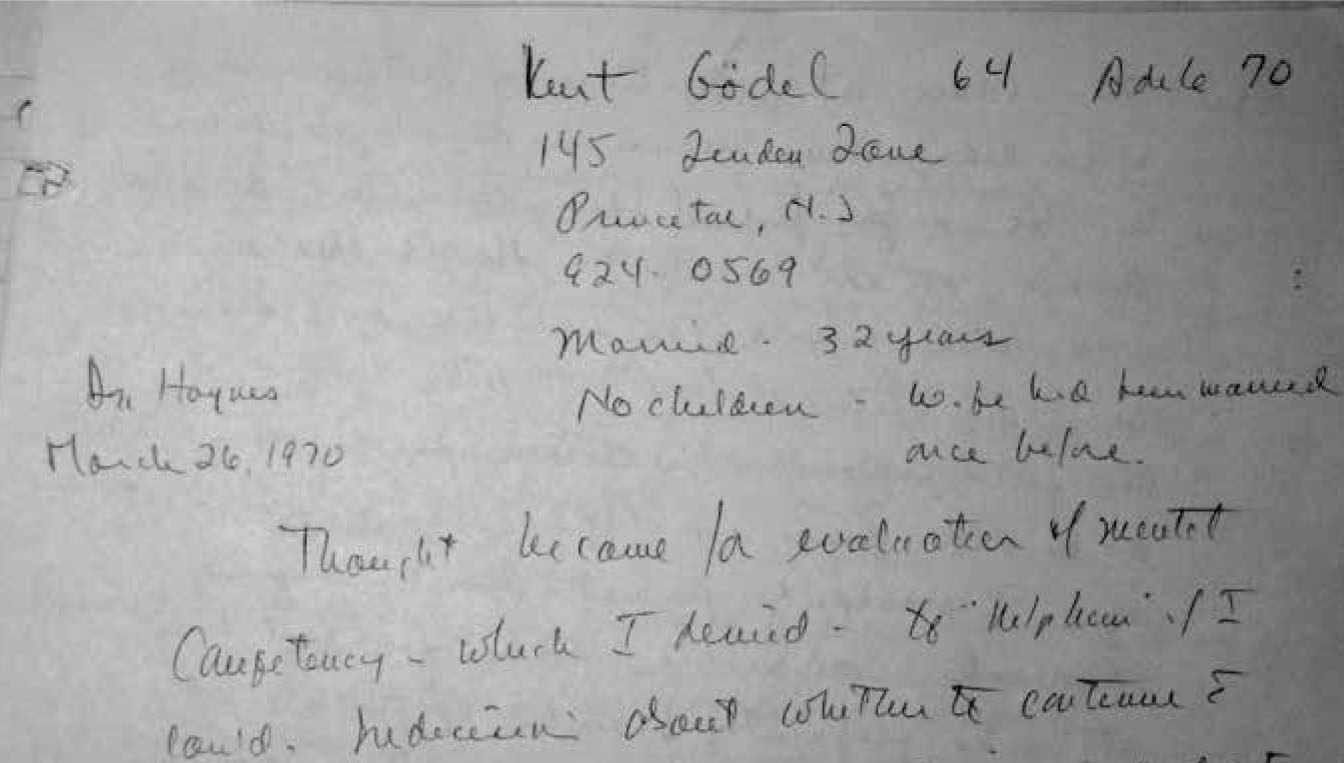 Kurt Gödel 64 Adele 70
145 Linden Lane
Princeton, N.J
924-0569
Married - 32 years
Dr. Haynes
No children - wife had been married
March 26, 1970
once before.
Thought he came for evaluation of mental
Competency - which I denied - to "help him" if I
could. Indecision about whether to continue c̄